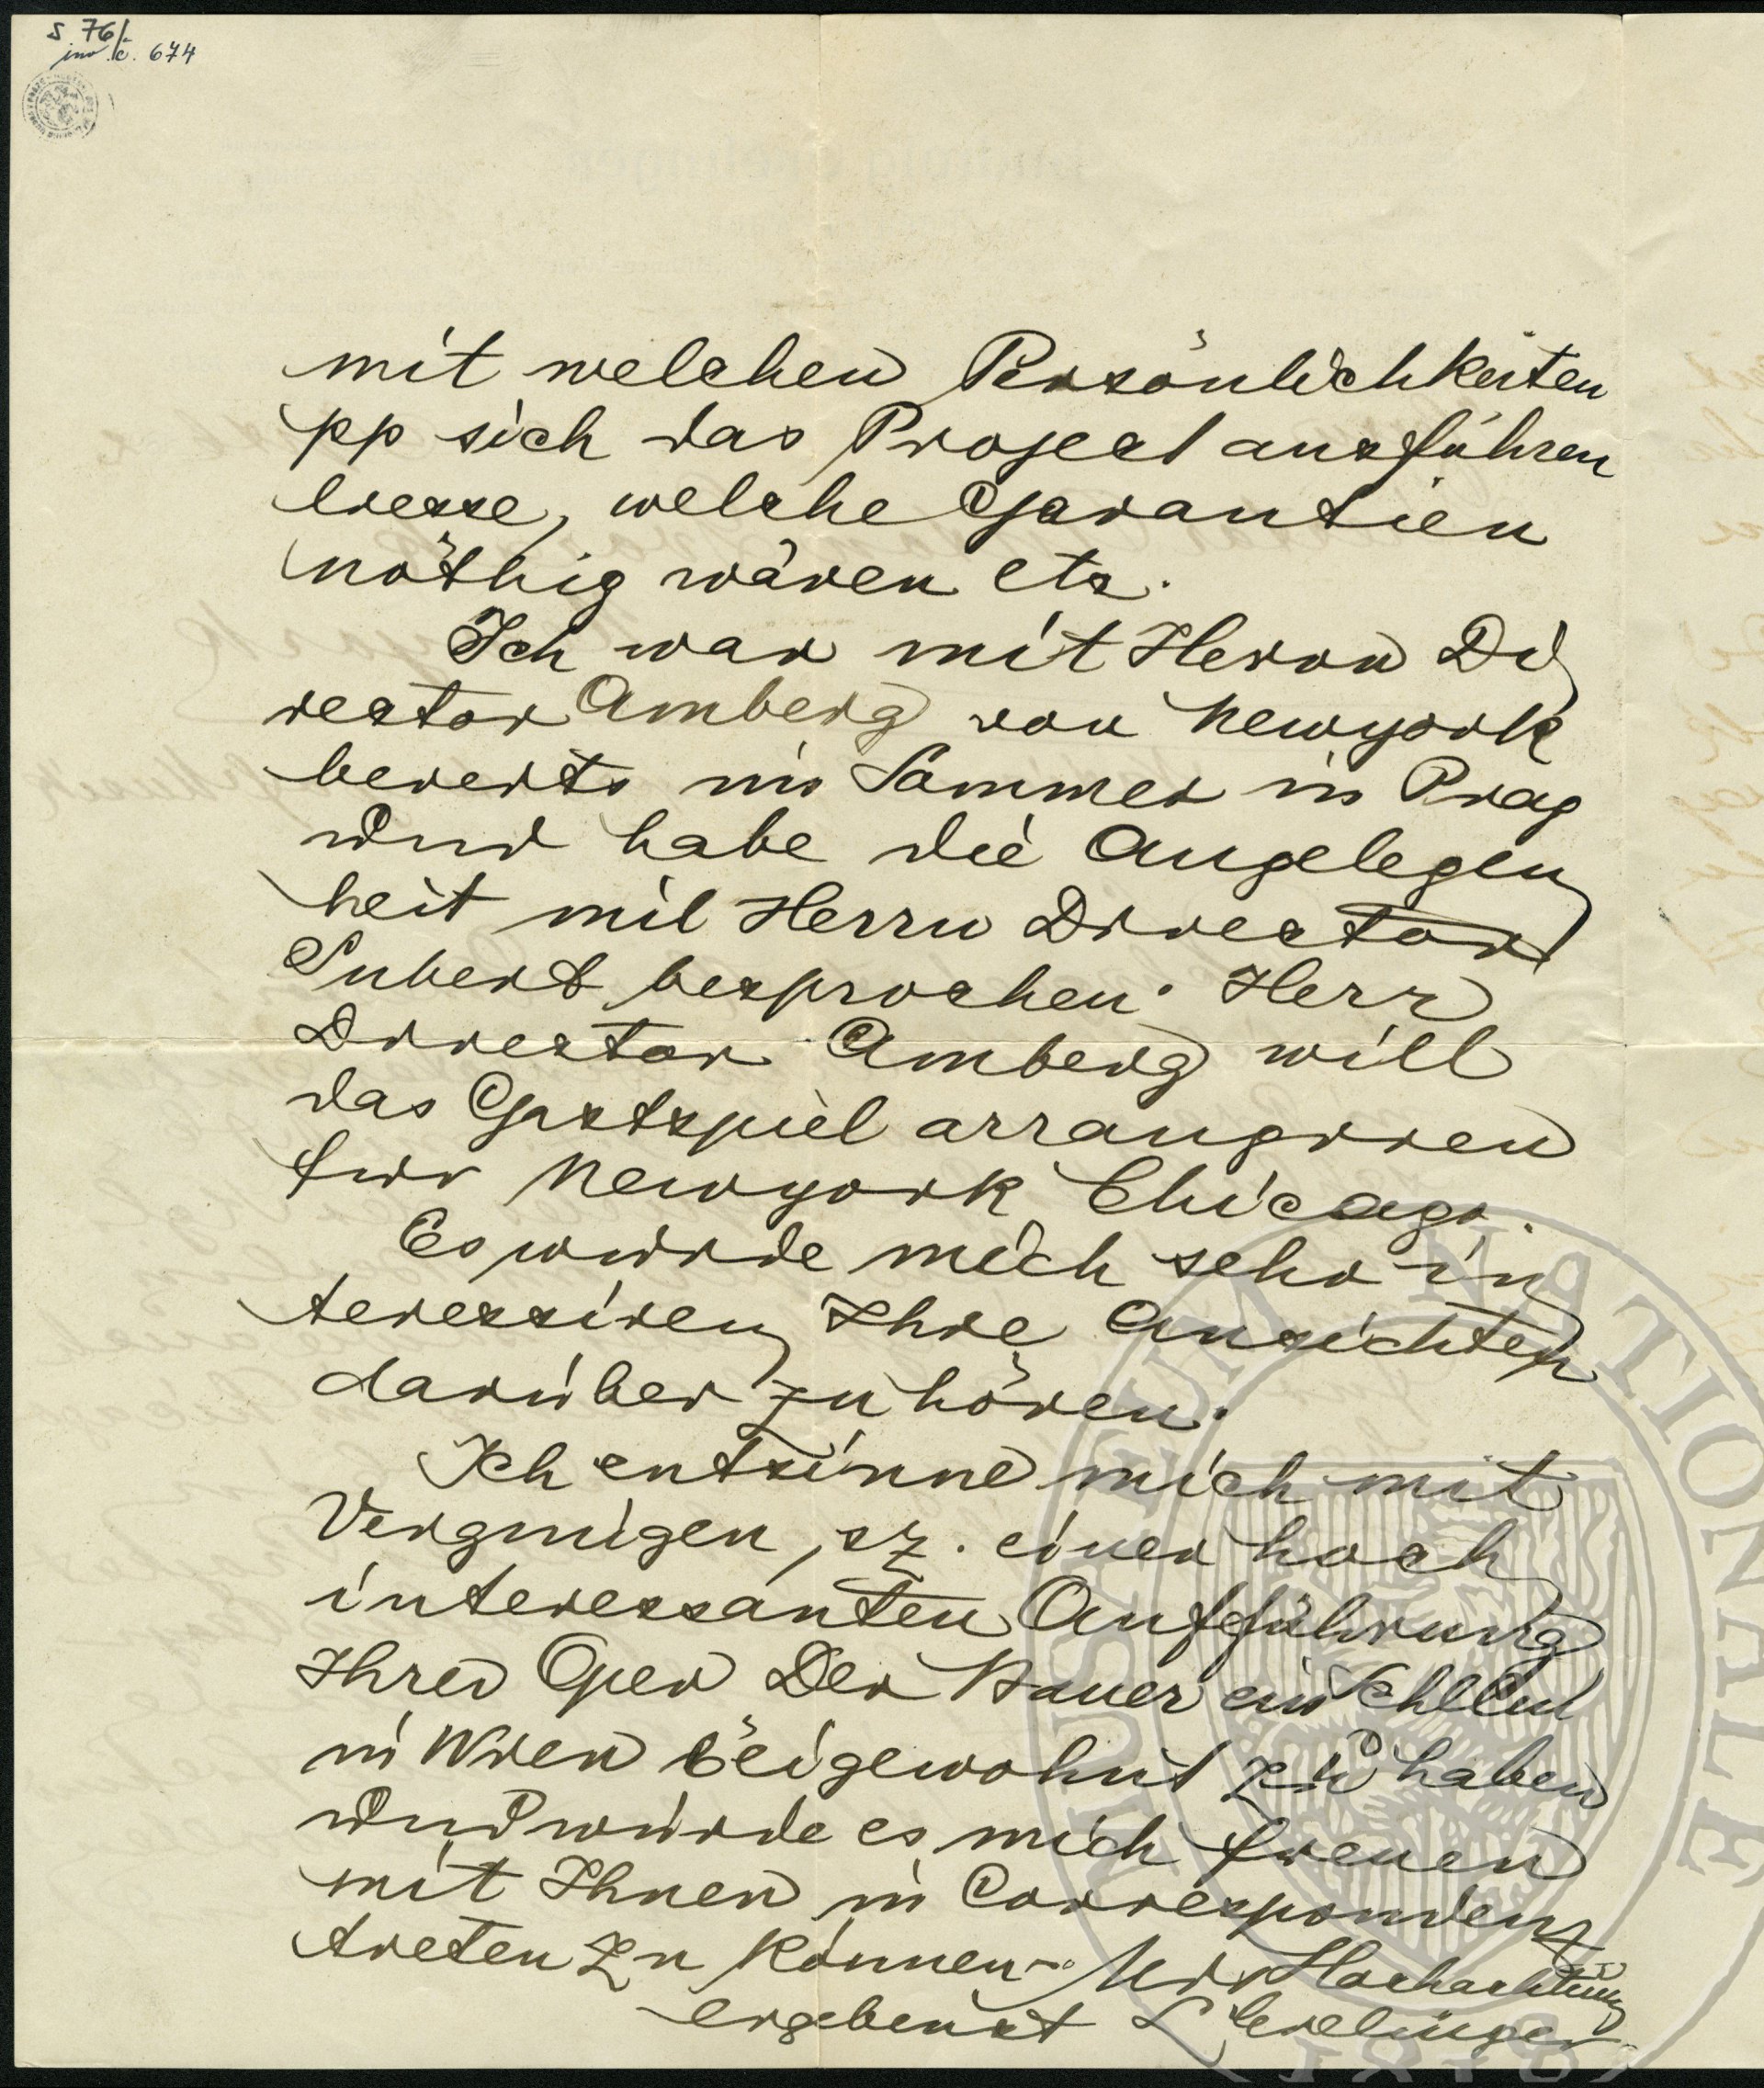 S. 76/
inv. č. 674
mit welchen Persönlichkeiten
pp sich das Project ausführen
liesse, welche Garantien
nöthig wären etc.
Ich war mit Herrn Di
rector Amberg von Newyork
bereits im Sommer in Prag
und habe die Angelegen
heit mit Herrn Director
Subert besprochen. Herr
Director Amberg will
das Gastspiel arrangiren
für Newyork Chicago.
Es würde mich sehr in
teressiren Ihre Ansichten
darüber zu hören.
Ich entsinne mich mit
Vergnügen, sz. einer hoch
interessanten Aufführung
Ihrer Oper Der Bauer ein Schelm
in Wien beigewohnt zu haben
und würde es mich freuen
mit Ihnen in Correspondenz
treten zu können. Mit Hochachtung
ergebenst
MUSEUM NATIONALE
1818